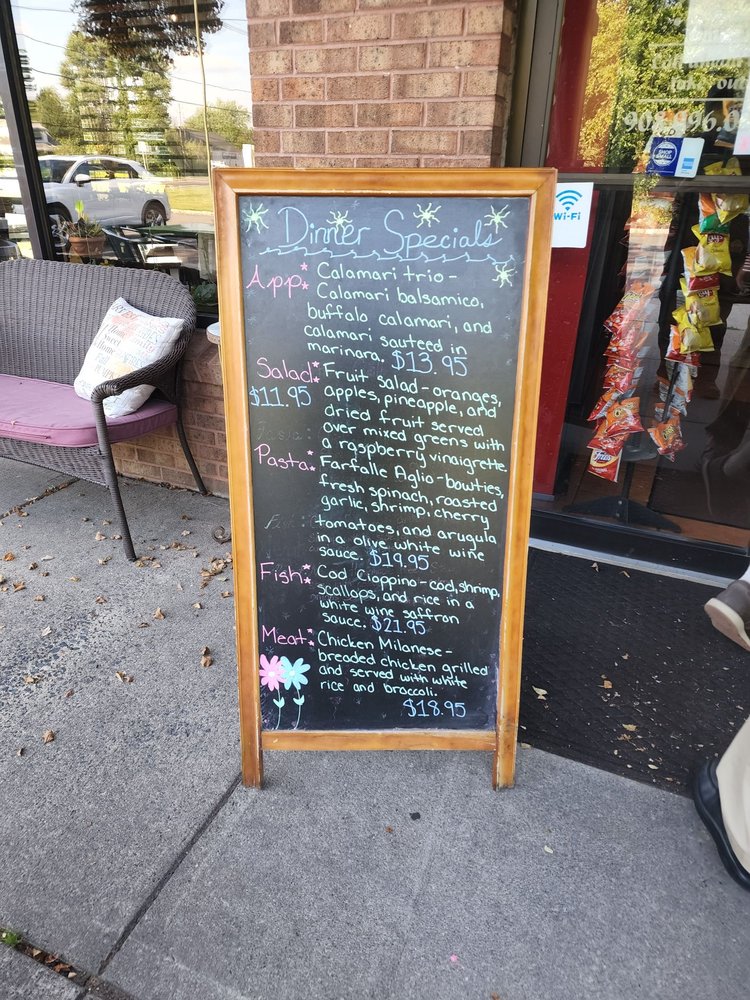 Dinner Specials
App: Calamari trio -
Calamari balsamico,
buffalo calamari, and
calamari sauteed in
marinara. $13.95
Salad: Fruit salad - oranges,
$11.95 apples, pineapple, and
dried fruit served
over mixed greens with
a raspberry vinaigrette
Pasta: Farfalle Aglio - bowties,
fresh spinach, roasted
garlic, shrimp, cherry
tomatoes, and arugula
in a olive white wine
sauce. $19.95
Fish: Cod Cioppino - cod, shrimp,
scallops, and rice in a
white wine saffron
sauce. $21.95
Meat: Chicken Milanese -
breaded chicken grilled
and served with white
rice and broccoli.
$18.95
Wi-Fi
SHOP
SMALL
Home
Sweet
Home